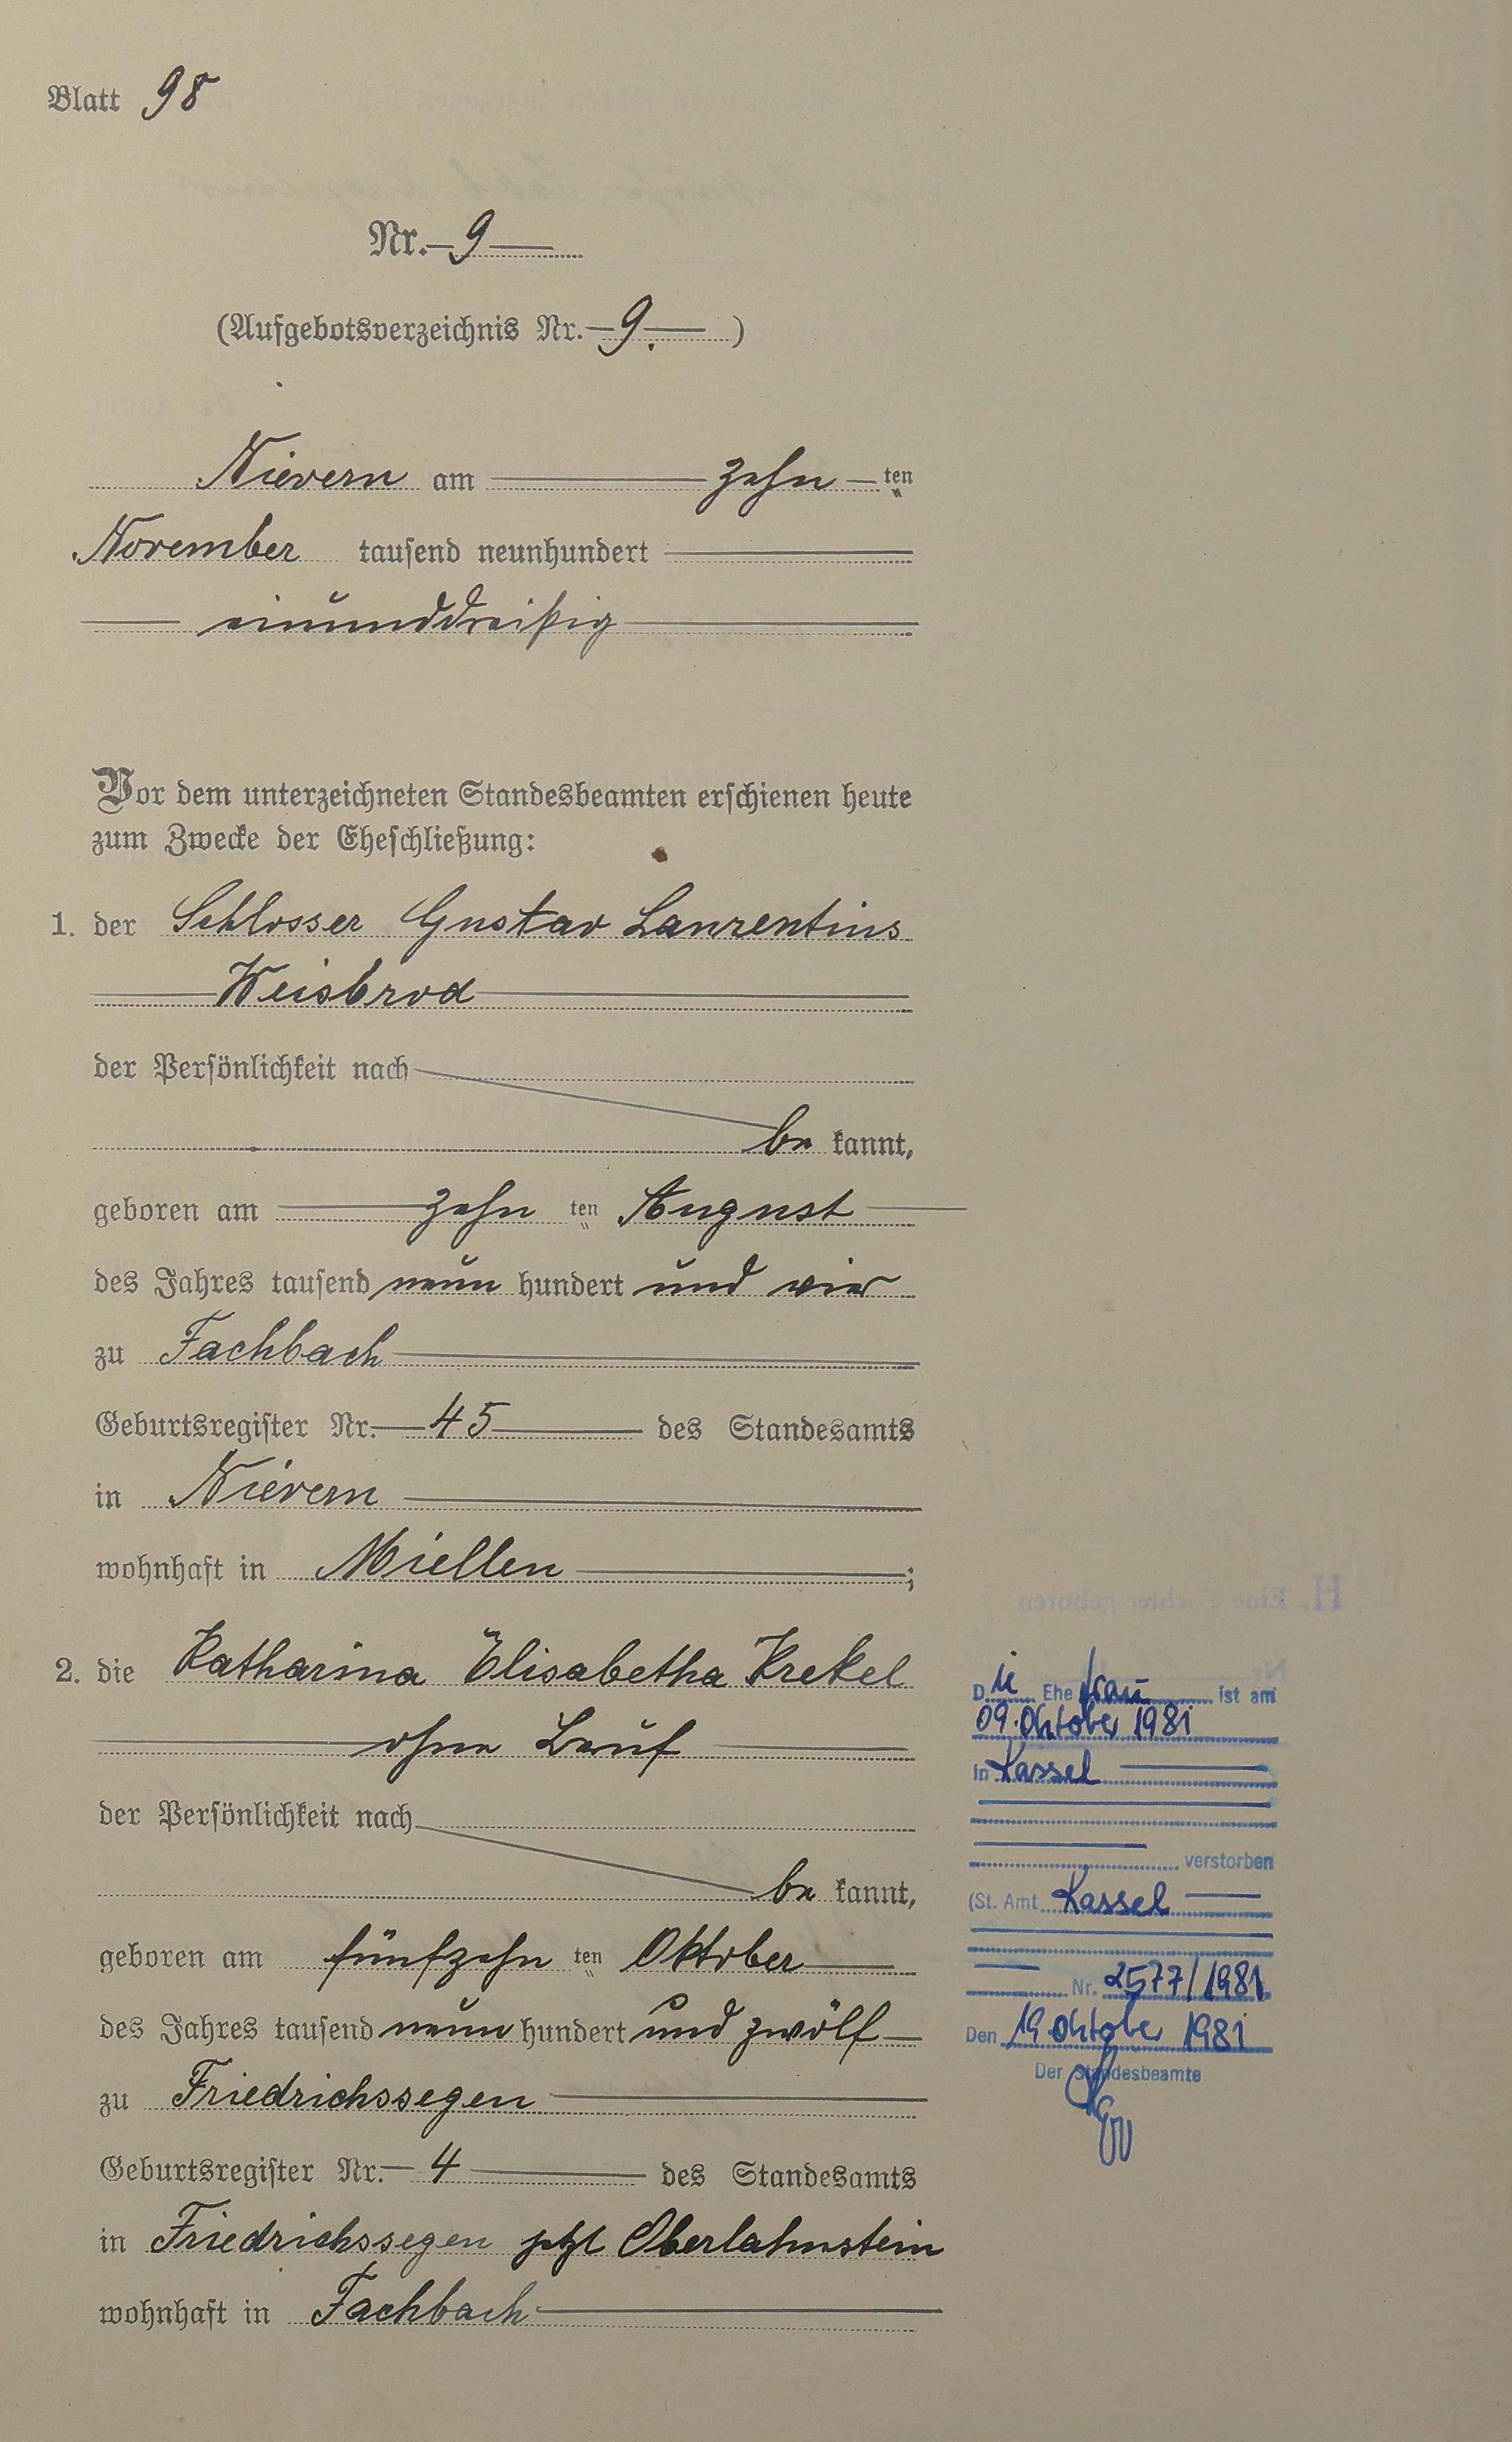 Blatt 98
Nr. 9
(Aufgebotsverzeichnis Nr. 9.)
Nievern am zehn ten
November tausend neunhundert
einunddreißig
Vor dem unterzeichneten Standesbeamten erschienen heute
zum Zwecke der Eheschließung:
1. der Schlosser Gustav Laurentius
Weisbrod
der Persönlichkeit nach
be kannt,
geboren am zehn ten August
des Jahres tausend neun hundert und vier
zu Fachbach
Geburtsregister Nr. 45 des Standesamts
in Nievern
wohnhaft in Miellen ;
2. die Katharina Elisabetha Krekel
ohne Beruf
der Persönlichkeit nach
be kannt,
geboren am fünfzehn ten Oktober
des Jahres tausend neun hundert und zwölf
zu Friedrichssegen
Geburtsregister Nr. 4 des Standesamts
in Friedrichssegen jetzt Oberlahnstein
wohnhaft in Fachbach
H. Eine Tochter geboren
Nr.
Die Ehefrau ist am
09. Oktober 1981
in Kassel
verstorben
(St. Amt Kassel
Nr. 2577/1981
Den 19. Oktober 1981
Der Standesbeamte